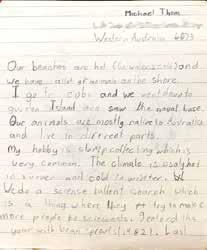 Michael Thom
Western Australia 6173
Our beaches are hot (Sometimes cold) and
we have a lot of animals on the shore.
I go to cubs and we went down to
garden Island and saw the naval base.
Our animals are mostly native to Australia
and live in different parts.
My hobby is stamp collecting which is
very common. The climate is
in summer and cold in winter.
We do a science talent search which
is a thing where they try to make
more people be scientists. I entered this
year with bean sprouts (1982). Last